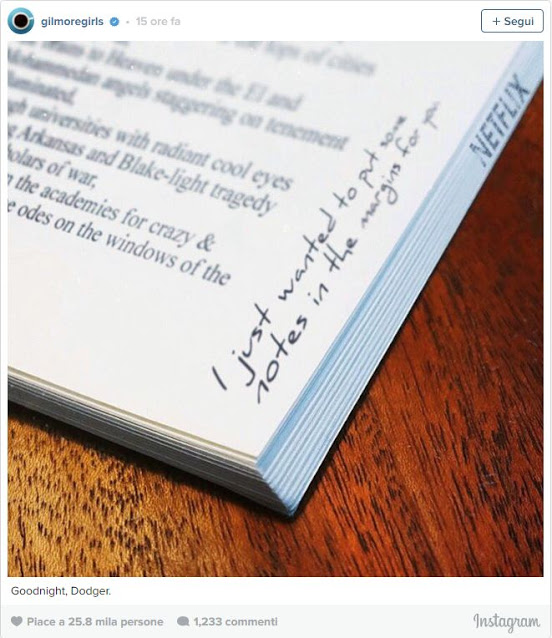 gilmoregirls • 15 ore fa
+ Segui
tops of cities
to Heaven under the El and
Mohammedan angels staggering on tenement
illuminated,
universities with radiant cool eyes
Arkansas and Blake-light tragedy
scholars of war,
the academies for crazy &
odes on the windows of the
I just wanted to put some
notes in the margins for you
NETFLIX
Goodnight, Dodger.
Piace a 25.8 mila persone 1,233 commenti
Instagram